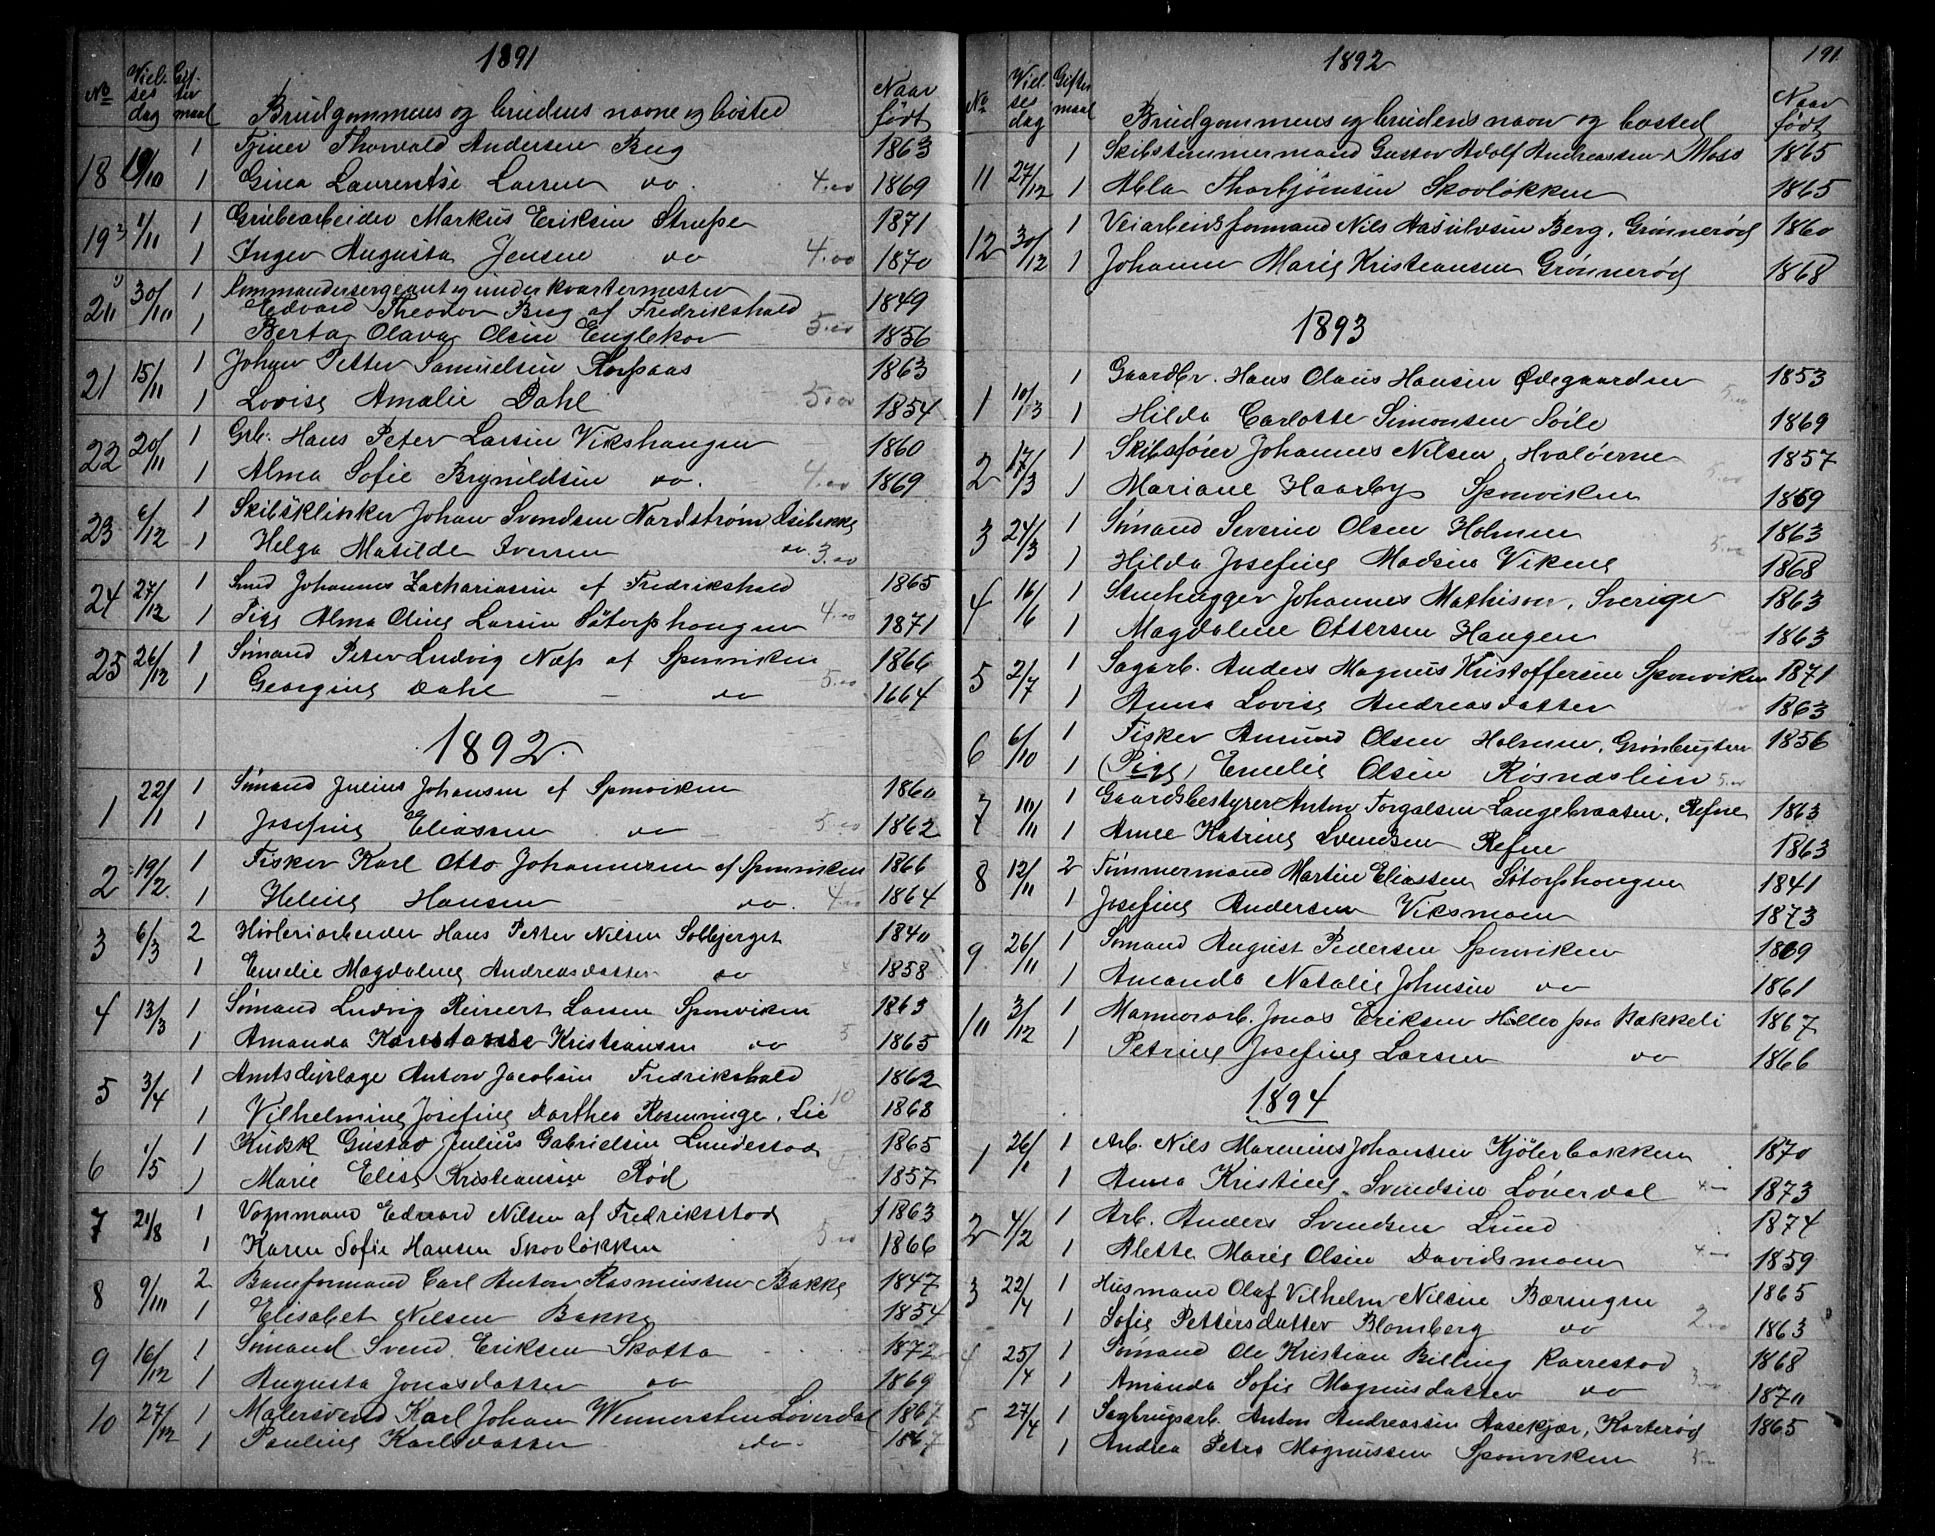 1891
No Viel- ses dag Gif- ter maal Brudgommens og brudens navne og bosted Naar født
18 10/10 1 Tjener Thorvald Andersen Berg 1863
1 Gina Laurentse Larsen do. 4.00 1869
19 1/11 1 Grubearbeider Markus Eriksen Strupe 1871
1 Inger Augusta Jensen do 4.00 1870
20 30/10 1 Kommandersergeant og underkvartermester
Edvard Theodor Berg af Fredrikshald 1849
1 Berta Olava Olsen Englekor 5.00 1856
21 15/11 1 Johan Petter Samuelsen Korpaas 1863
1 Lovise Amalie Dahl 5.00 1854
22 20/11 1 Grb. Hans Peter Larsen Vikshaugen 1860
1 Alma Sofie Brynildsen do. 4.00 1869
23 6/12 1 Skibsklinker Johan Svendsen Nordstrøm Isebakke
1 Helga Matilde Iversen do. 3.00
24 27/12 1 Smed Johannes Zachariassen af Fredrikshald 1865
1 Pige Alma Oline Larsen Søtorphougen 4.00 1871
25 26/12 1 Sømand Peter Ludvig Næss af Sponviken 1866
1 Georgine Dahl do 5.00 1664
1892.
1 22/1 1 Sømand Julius Johansen af Sponviken 1860
1 Josefine Eliassen do 5.00 1862
2 19/2 1 Fisker Karl Otto Johannesen af Sponviken 1866
1 Heline Hansen do. 4.00 1864
3 6/3 2 Høvleriarbeider Hans Petter Nilsen Solbjerget 1840
1 Emelie Magdaline Andreasdatter do 4 1858
4 13/3 1 Sømand Ludvig Reinert Larsen Sponviken 1863
1 Amanda Konstanse Kristiansen do 5 1865
5 3/4 1 Amtsdyrlæge Anton Jacobsen Fredrikshald 1862
1 Vilhelmine Josefine Dorthea Rosenvinge, Lie 10 1868
6 1/5 1 Kudsk Gustav Julius Gabrielsen Lundestad 1865
1 Marie Elise Kristiansen Rød 1857
7 21/8 1 Vognmand Edvard Nilsen af Fredriksstad 1863
1 Karen Sofie Hansen Skovløkken 5.00 1866
8 9/10 2 Baneformand Carl Anton Rasmussen Bakke 1847
1 Elisabet Nilsen Bakke 1854
9 16/12 1 Sømand Svend Eriksen Skotta 1872
1 Augusta Jonasdatter do 1869
10 27/12 1 Malersvend Karl Johan Wennersten Løverdal 1867
1 Pauline Karlsdatter do. 1867
1892 191
No Viel- ses dag Gifter maal Brudgommens og brudens navn og bosted Naar født
11 27/12 1 Skibstømmermand Gustav Adolf Andreassen, Moss 1865
1 Abla Thorbjørnsen Skovløkken 1865
12 30/12 1 Veiarbeidsformand Nils Aasulvsen Berg, Grønnerød 1860
1 Johanne Marie Kristiansen Grønnerød 1868
1893
1 10/3 1 Gaardbr. Hans Olaus Hansen Ødegaarden 5.00 1853
1 Hilda Carlotte Simonsen Soile 1869
2 17/3 1 Skibsfører Johannes Nilsen, Hvaløerne 5.00 1857
1 Mariane Haarby Sponviken 1859
3 24/3 1 Sømand Severin Olsen Holmen 5.00 1863
1 Hilda Josefine Madsen Vikene 1868
4 16/6 1 Stenhugger Johannes Mathisen, Sverige 1863
1 Magdalene Ottersen Haugen 1863
5 2/7 1 Sagarb. Anders Magnus Kristoffersen Sponviken 1871
1 Anna Lovise Andreasdatter 1863
6 6/10 1 Fisker Amund Olsen Holmen, Grønbugten 1856
1 (Pige) Emelie Olsen Røsnæslien 5.00
7 10/11 1 Gaardsbestyrer Anton Torgalsen Langebraaten, Refne 1863
1 Anne Katrine Svendsen Refne 1863
8 12/11 2 Tømmermand Martin Eliassen Søtorphougen 1841
1 Josefine Andersen Viksmoen 1873
9 26/11 1 Sømand August Pedersen Sponviken 1869
1 Amanda Natalie Johnsen do 1861
10 3/12 1 Murerarb. Jonas Eriksen Holler paa Bakkeli 1867
1 Petrine Josefine Larsen do 1866
1894
1 26/1 1 Arb. Nils Marenius Johansen Kjølerbakken 1870
1 Anna Kristine Svendsen Løverdal 4- 1873
2 4/2 1 Arb. Anders Svendsen Lund 1874
1 Alette Marie Olsen Davidsmoen 4.00 1859
3 22/4 1 Husmand Olaf Vilhelm Nilsen Bæringen 1865
1 Sofie Pettersdatter Blomberg do 2.00 1863
4 25/4 1 Sømand Ole Kristian Billing Karrestad 1868
1 Amanda Sofie Magnusdatter do 3.00 1870
5 27/4 1 Sagbrugsarb. Anton Andreassen Aasekjær, Korterød 1865
1 Andrea Petra Magnussen Sponviken 5-